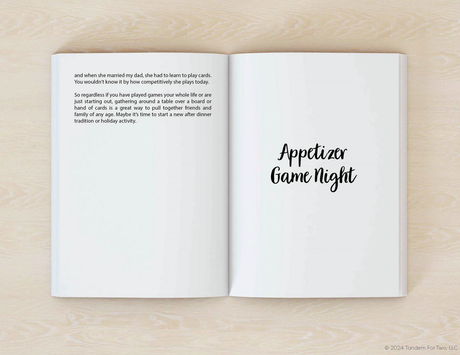 and when she married my dad, she had to learn to play cards.
You wouldn't know it by how competitively she plays today.
So regardless if you have played games your whole life or are
just starting out, gathering around a table over a board or
hand of cards is a great way to pull together friends and
family of any age. Maybe it's time to start a new after dinner
tradition or holiday activity.
Appetizer
Game Night
© 2024 Tandem For Two, LLC